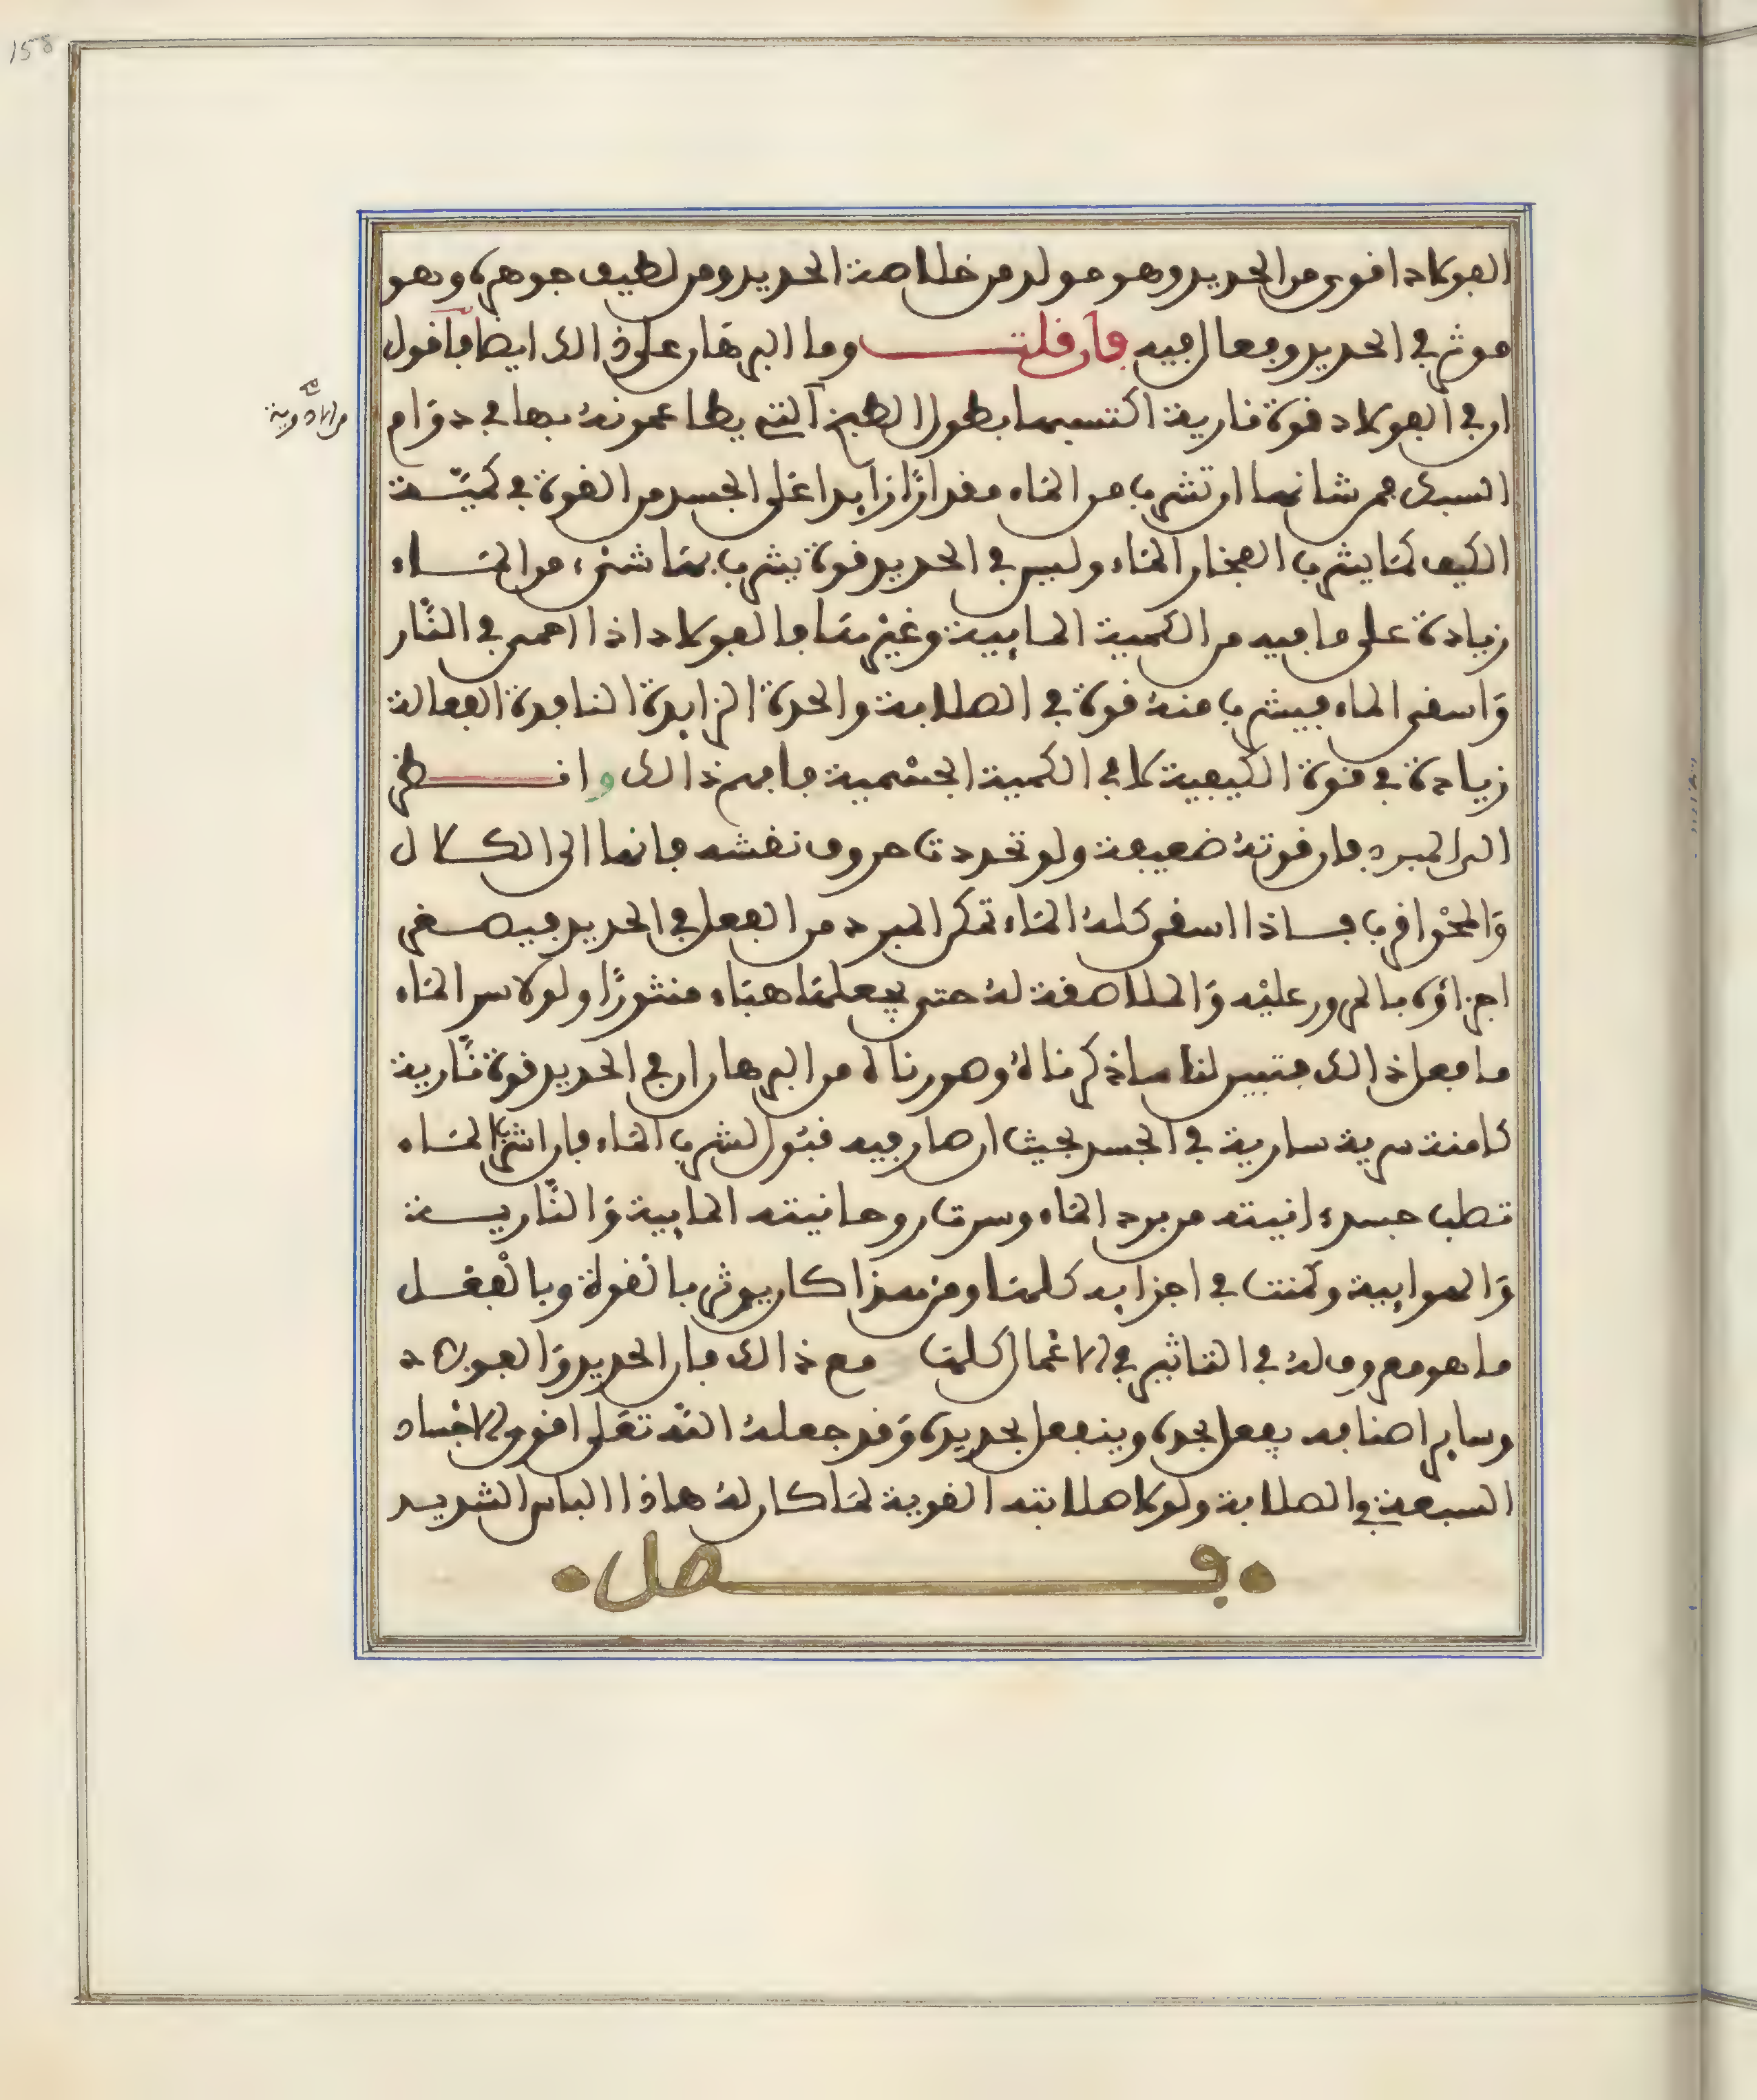 158
الفولاد اقوى من الحديد وهو مولد من خلاصة الحديد ومن لطيف جوهره وهو
موثر في الحديد وفعال فيه فان قلت وما البرهان على ذالك ايضا فاقول
ان في الفولاد قوة نارية اكتسبها بطول الطبخ التي يطاعمونه بها في دوام
من الادوية صح
السبك فمن شانها ان تشرب من الماء مقدارًا زايدا على الجسد من القوة في كميّة
الكيف كما يشرب الفخار الماء وليس في الحديد قوة يشرب بها شئ من الماء
زيادة على ما فيه من الكمية المايية وغيرها فالفولاد اذا احمى في النّار
وَاسقى الماء فيشرب منه قوة في الصلابة والحدة الزايدة النافدة الفعالة
زيادة في قوة الكيفية لا في الكمية الجسْمية فافهم ذالك وانظر
الى المبرد فان قوته ضعيفة ولو تحددت حروف نقشه فانها الى الكلال
وَالانحراف فاذا اسقى كله الماء تمكن المبرد من الفعل في الحديد فيصغر
اجزاؤه بالمرور عليْه وَالملاصقة له حتى يجعلها هباء منثورًا ولولا سر الماء
ما فعل ذالك فتبين لنا ما ذكرناه وصورناه من البرهان ان في الحديد قوة نّارية
كامنة سرية سارية في الجسد بحيث ان صار فيه قبول لشرب الماء فان اشرب الماء
تصلب جسدانيته من برد الماء وسرت روحانيته المايية وَالنّارية
وَالهوايية وكمنت في اجزايه كلها ومن هذا كان يوثر بالقوة وبالْفعل
ما هو معروف له في التاثير في الاعْمال كلها مع ذالك فان الحديد وَالفولاد
وساير اصنافه يفعل بحده وينفعل بحديده وَقد جعله اللّه تعَلى اقوى الاجْساد
السبعة في الصلابة ولولا صلابته القوية لما كان له هاذا الباس الشديد
فصل